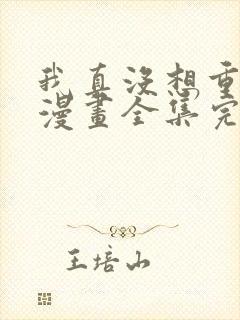 我真沒想重
漫畫全集完
王培山